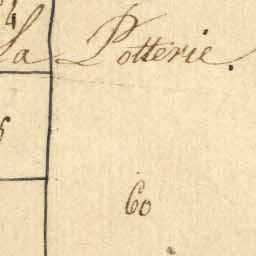 La Potterie.
60